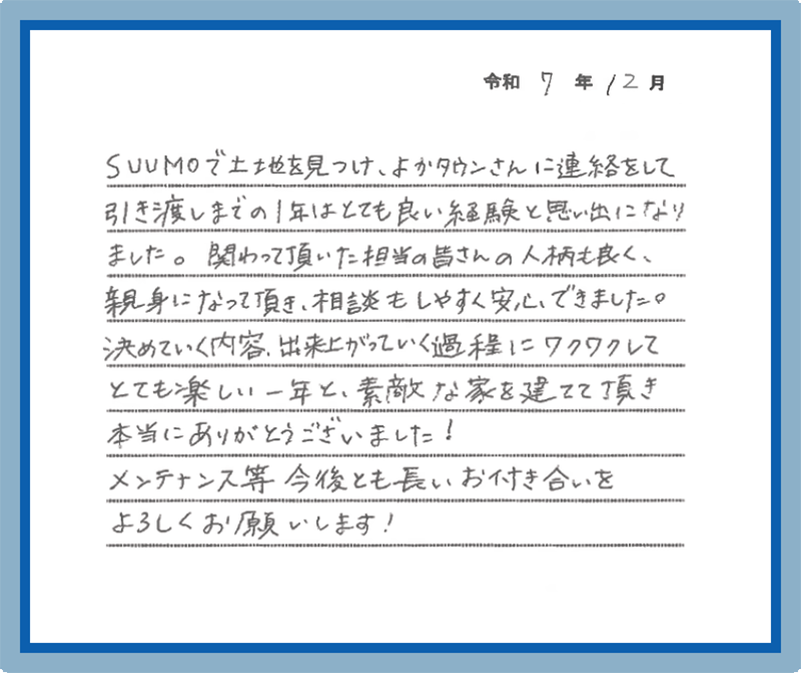 令和 7 年 12 月
SUUMOで土地を見つけ、よかタウンさんに連絡をして
引き渡しまでの1年はとても良い経験と思い出になり
ました。関わって頂いた担当の皆さんの人柄も良く、
親身になって頂き、相談もしやすく安心できました。
決めていく内容、出来上がっていく過程にワクワクして
とても楽しい一年と、素敵な家を建てて頂き
本当にありがとうございました!
メンテナンス等 今後とも長いお付き合いを
よろしくお願いします!